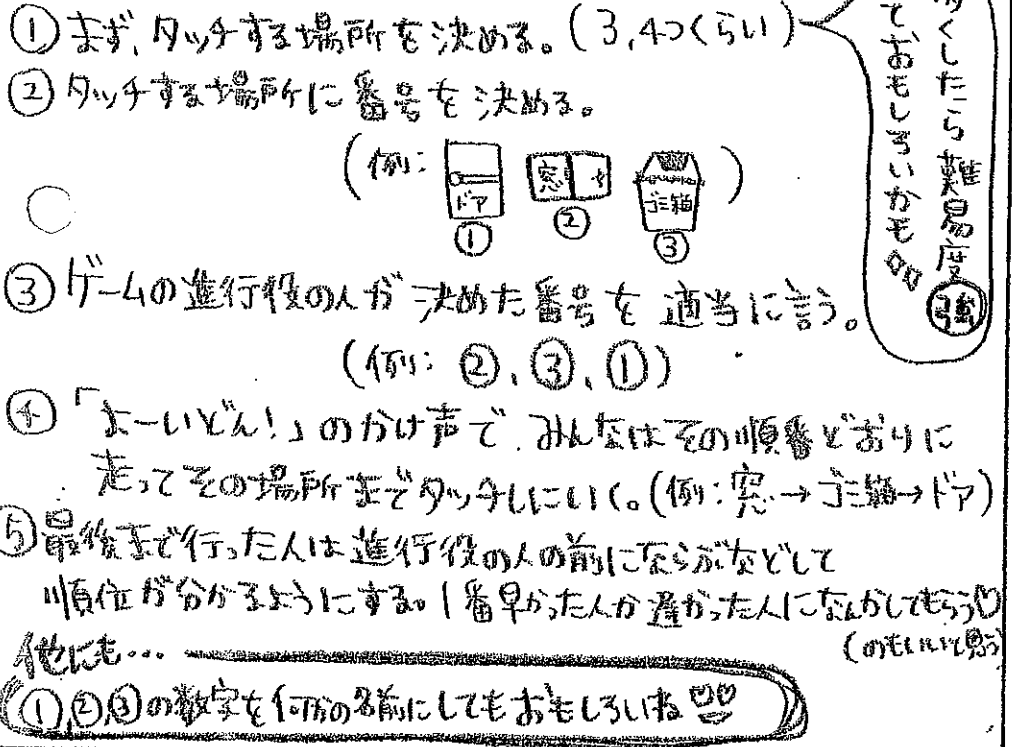 ① まず、タッチする場所を決める。(3,4つくらい)
② タッチする場所に番号を決める。
(例: ドア ① 窓 ② ゴミ箱 ③ )
③ ゲームの進行役の人が決めた番号を適当に言う。
(例: ②、③、①)
④ 「よーいどん!」のかけ声で、みんなはその順番どおりに
走ってその場所までタッチしにいく。(例:窓→ゴミ箱→ドア)
⑤ 最後まで行った人は進行役の人の前にならぶなどして
順位が分かるようにする。1番早かった人が遅かった人になんかしてもらう♡
(のもいいと思う
他にも…
①,②,③の数字を何かの名前にしてもおもしろいね
くしたら難易度強
ておもしろいかも